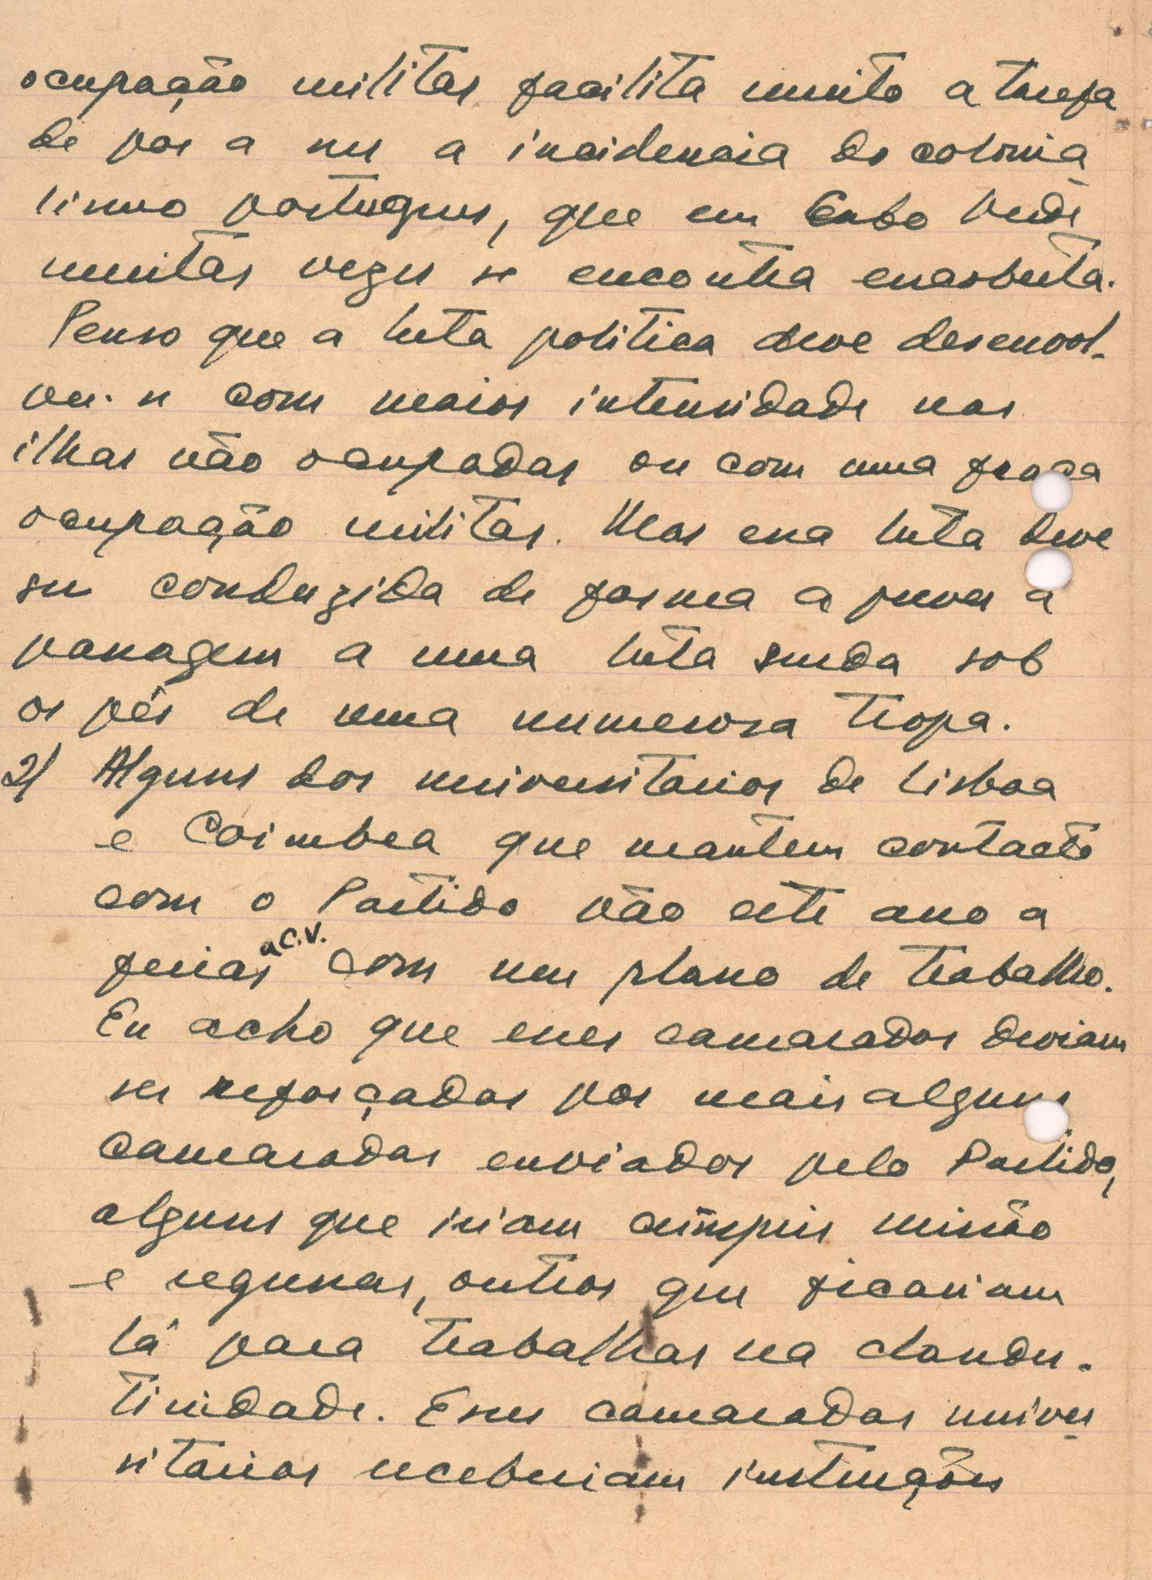 ocupação militar facilita muito a tarefa
de pôr a nu a incidencia do colonia
lismo portugues, que em Cabo Verde
muitas vezes se encontra encoberta.
Penso que a luta politica deve desenvol-
ver-se com maior intensidade nas
ilhas não ocupadas ou com uma fraca
ocupação militar. Mas essa luta deve
ser conduzida de forma a prever a
passagem a uma luta surda sob
os pés de uma numerosa tropa.
2/ Alguns dos universitarios de Lisboa
e Coimbra que mantem contacto
com o Partido vão este ano a
ferias a C.V. com um plano de trabalho.
Eu acho que esses camaradas deviam
ser reforçados por mais alguns
camaradas enviados pelo Partido,
alguns que iriam cumprir missão
e regressar, outros que ficariam
lá para trabalhar na clandes-
tinidade. Esses camaradas univer
sitarios receberiam instruções